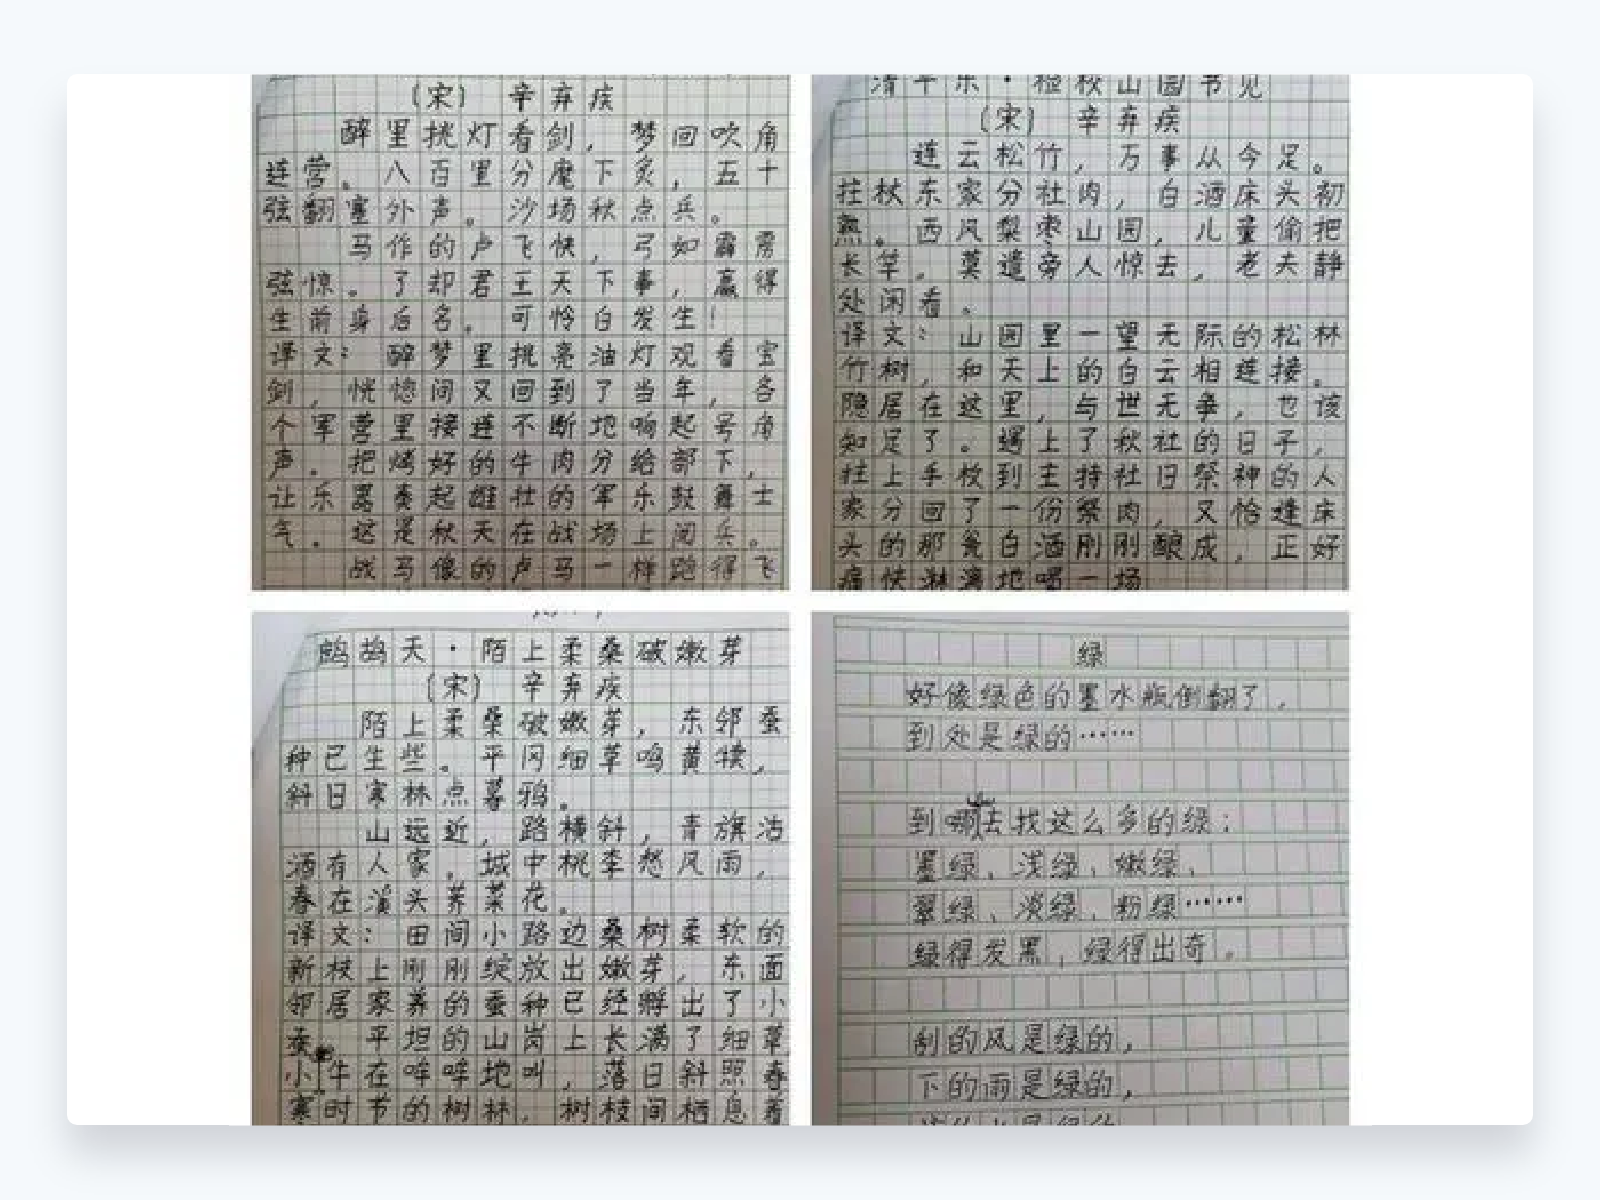 （宋） 辛弃疾
醉里挑灯看剑，梦回吹角
连营。八百里分麾下炙，五十
弦翻塞外声。沙场秋点兵。
马作的卢飞快，弓如霹雳
弦惊。了却君王天下事，赢得
生前身后名。可怜白发生！
译文：醉梦里挑亮油灯观看宝
剑，恍惚间又回到了当年，各
个军营里接连不断地响起号角
声。把烤好的牛肉分给部下，
让乐器奏起雄壮的军乐鼓舞士
气。这是秋天在战场上阅兵。
战马像的卢马一样跑得飞
清平乐·检校山园书见
（宋） 辛弃疾
连云松竹，万事从今足。
拄杖东家分社肉，白酒床头初
熟。西风梨枣山园，儿童偷把
长竿。莫遣旁人惊去，老夫静
处闲看。
译文：山园里一望无际的松林
竹树，和天上的白云相连接。
隐居在这里，与世无争，也该
知足了。遇上了秋社的日子，
拄上手杖到主持社日祭神的人
家分回了一份祭肉，又恰逢床
头的那瓮白酒刚刚酿成，正好
痛快淋漓地喝一场
鹧鸪天·陌上柔桑破嫩芽
（宋） 辛弃疾
陌上柔桑破嫩芽，东邻蚕
种已生些。平冈细草鸣黄犊，
斜日寒林点暮鸦。
山远近，路横斜，青旗沽
酒有人家。城中桃李愁风雨，
春在溪头荠菜花。
译文：田间小路边桑树柔软的
新枝上刚刚绽放出嫩芽，东面
邻居家养的蚕种已经孵出了小
蚕。平坦的山岗上长满了细草，
小牛在哞哞地叫，落日斜照春
寒时节的树林，树枝间栖息着
绿
好像绿色的墨水瓶倒翻了，
到处是绿的……
到哪去找这么多的绿：
墨绿、浅绿、嫩绿、
翠绿、淡绿、粉绿……
绿得发黑，绿得出奇。
刮的风是绿的，
下的雨是绿的，